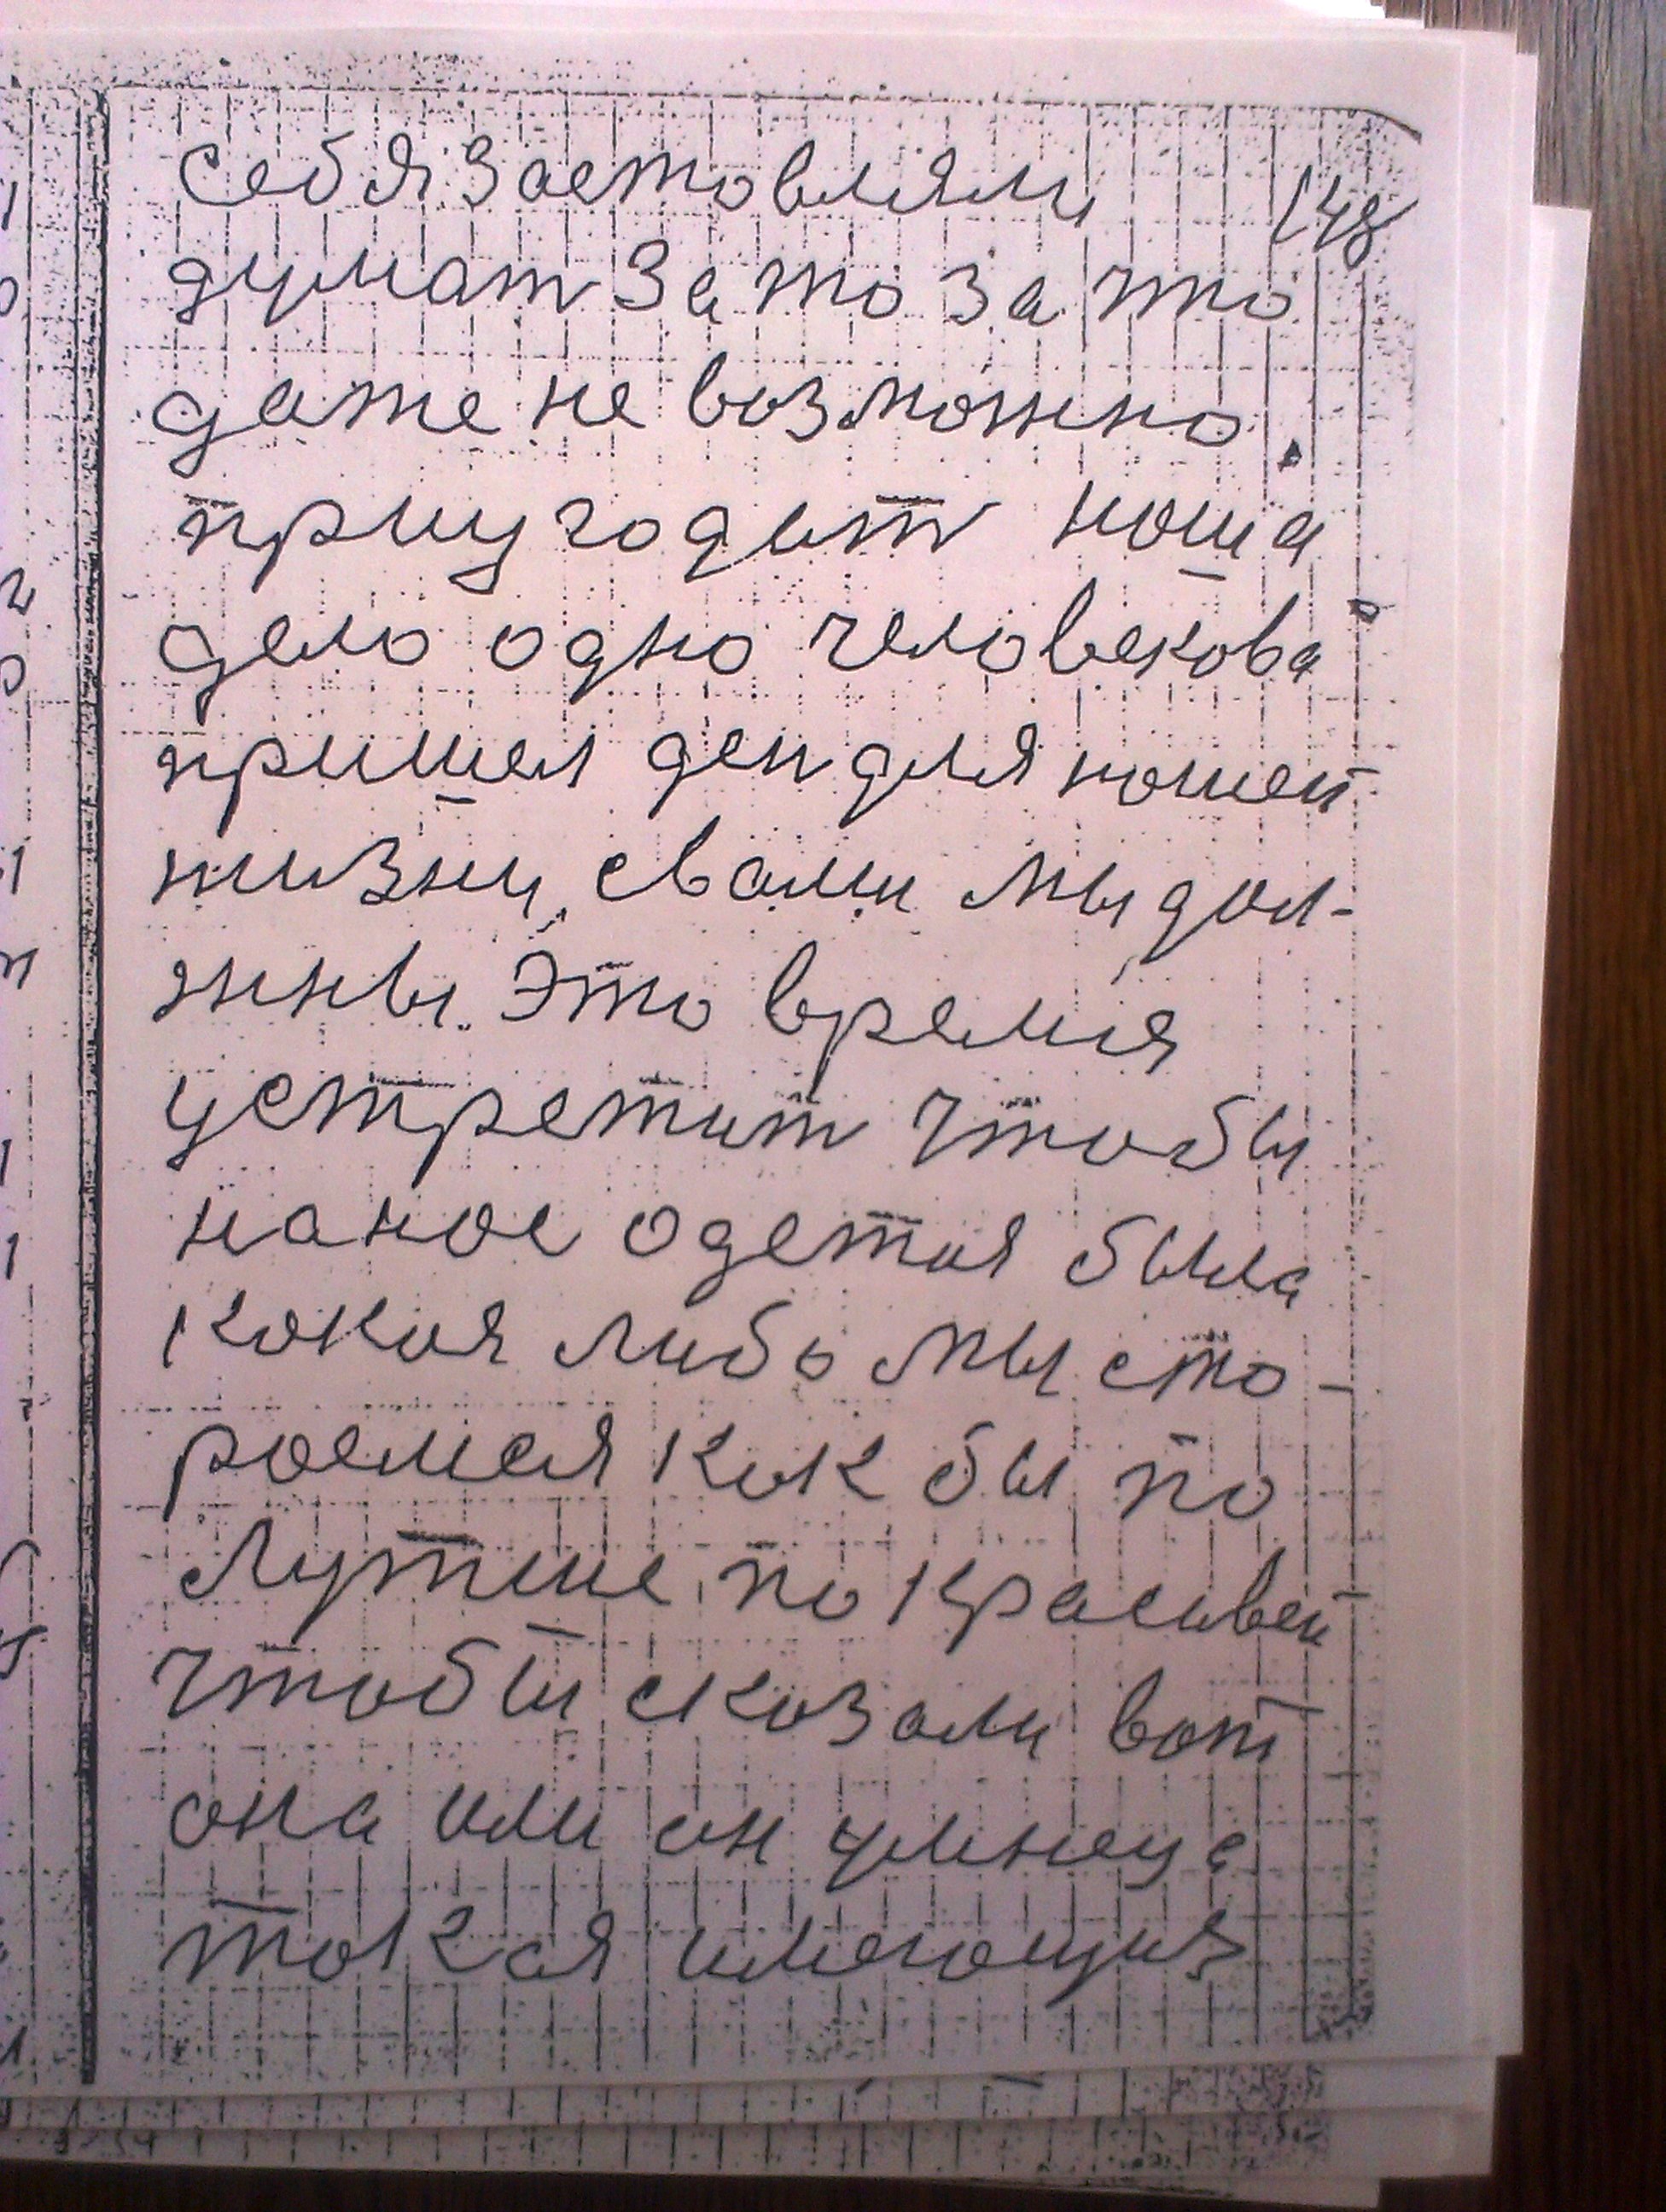 себя заставляли 148
думат за то за что
даже не возможно.
приугодит наша
дело одно человекова
пришел ден для нашей
жизни, свами мы дол-
жны. Это время
устретит чтобы
нанос одетая была
какая либо мы ста-
раемся как бы по
Лутше, по красивей
чтобы сказали вот
она или он умнеца
такая имеющия